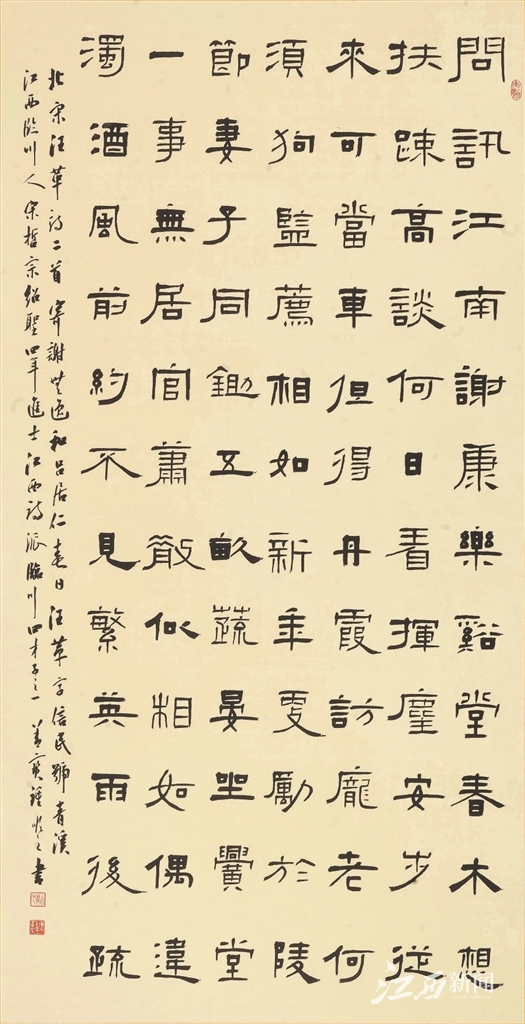 問訊江南謝康樂谿堂春木想
扶踈高談何日看揮麈安步從
來可當車但得丹霞訪龐老何
須狗監薦相如新年更勵於陵
節妻子同鋤五畝蔬晏坐黌堂
一事無居官蕭散似相如偶違
濁酒風前約不見繁英雨後疏
北宋汪革詩二首寄謝無逸和吕居仁春日汪革字信民號青溪
江西臨川人宋哲宗紹聖四年進士江西詩派臨川四才子之一
書
江西新闻